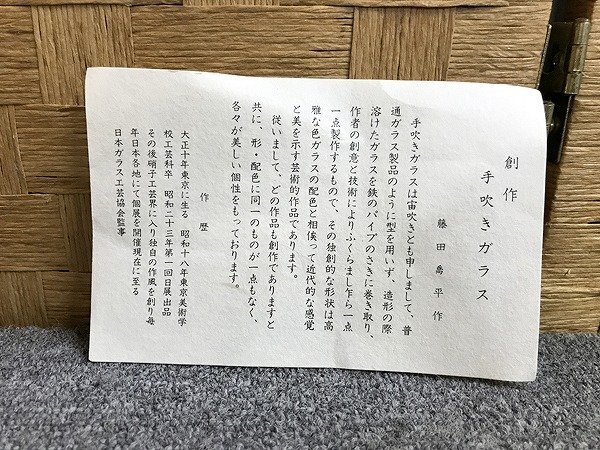 創作
手吹きガラス
藤田喬平作
手吹きガラスは宙吹きとも申しまして、普
通ガラス製品のように型を用いず、造形の際
溶けたガラスを鉄のパイプのさきに巻き取り、
作者の創意と技術によりふくらまし乍ら一点
一点製作するもので、その独創的な形状は高
雅な色ガラスの配色と相俟って近代的な感覚
と美を示す芸術的作品であります。
従いまして、どの作品も創作でありますと
共に、形・配色に同一のものが一点もなく、
各々が美しい個性をもっております。
作歴
大正十年東京に生る 昭和十八年東京美術学
校工芸科卒 昭和二十三年第一回日展出品
その後硝子工芸界に入り独自の作風を創り毎
年日本各地にて個展を開催現在に至る
日本ガラス工芸協会監事